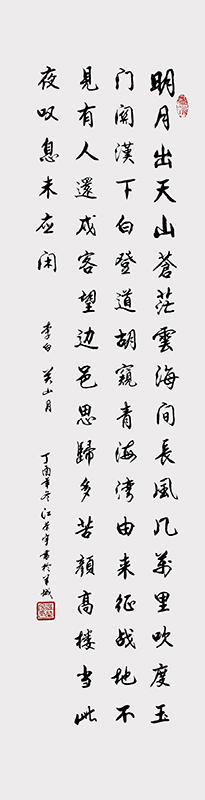 明月出天山蒼茫雲海间長風几萬里吹度玉
门関漢下白登道胡窺青海湾由来征战地不
見有人還戍客望边邑思歸多苦顏高楼当此
夜叹息未应闲
李白 关山月
丁酉年冬江 宇書於羊城